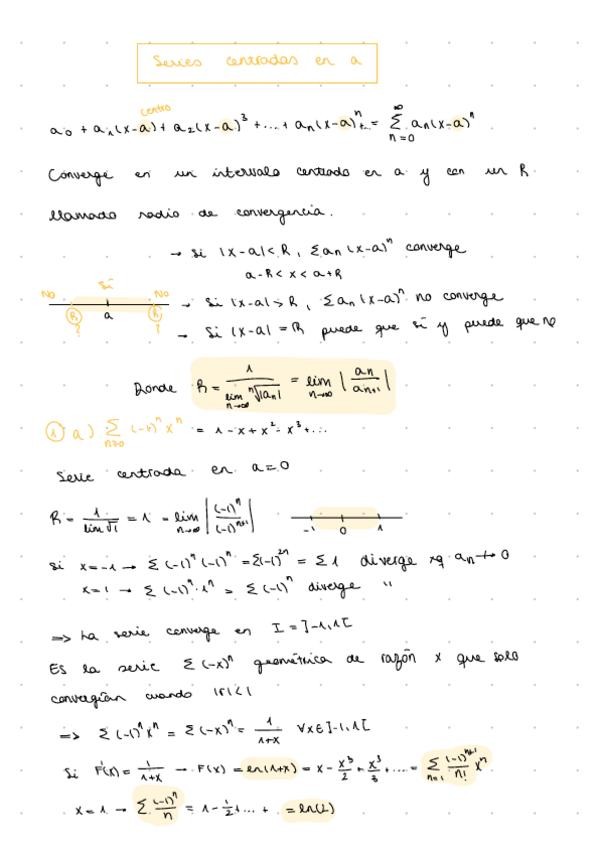 Series centradas en a
centro
a₀ + a₁(x-a) + a₂(x-a)³ + .... + aₙ(x-a)ⁿ+... = ∑_{n=0}^{∞} aₙ(x-a)ⁿ
Converge en un intervalo centrado en a y con un R
llamado radio de convergencia.
→ Si |x-a| < R, ∑aₙ(x-a)ⁿ converge
a-R < x < a+R
No Sí No
→ Si |x-a| > R, ∑aₙ(x-a)ⁿ no converge
R a R
? ?
→ Si |x-a| = R puede que sí y puede que no
Donde R = 1 / lim_{n→∞} ⁿ√|aₙ| = lim_{n→∞} |aₙ / aₙ₊₁|
① a) ∑_{n≥0} (-1)ⁿ xⁿ = 1 - x + x² - x³ + ...
Serie centrada en a=0
R = 1 / lim √1 = 1 = lim_{n→∞} |(-1)ⁿ / (-1)ⁿ⁺¹|
-1 0 1
Si x=-1 → ∑(-1)ⁿ(-1)ⁿ = ∑(-1)²ⁿ = ∑1 diverge xq aₙ↛0
x=1 → ∑(-1)ⁿ·1ⁿ = ∑(-1)ⁿ diverge "
⇒ La serie converge en I = ]-1,1[
Es la serie ∑(-x)ⁿ geométrica de razón x que solo
convergían cuando |r|<1
⇒ ∑(-1)ⁿxⁿ = ∑(-x)ⁿ = 1/(1+x) ∀x∈]-1,1[
Si F'(x) = 1/(1+x) → F(x) = ln(1+x) = x - x³/2 + x³/3 + .... = ∑_{n=1} (-1)ⁿ⁺¹/n! xⁿ
x=1 → ∑ (-1)ⁿ/n = 1 - 1/2 1... + = ln(2)